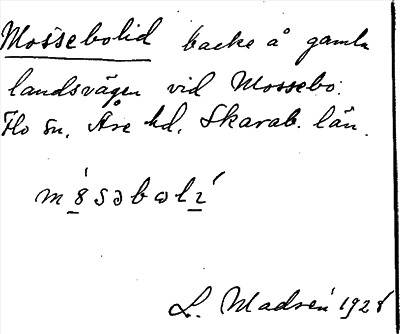 Mossebolid backe å gamla
landsvägen vid Mossebo.
Flo sn. Åse hd. Skarab. län.
L. Madsén 1928